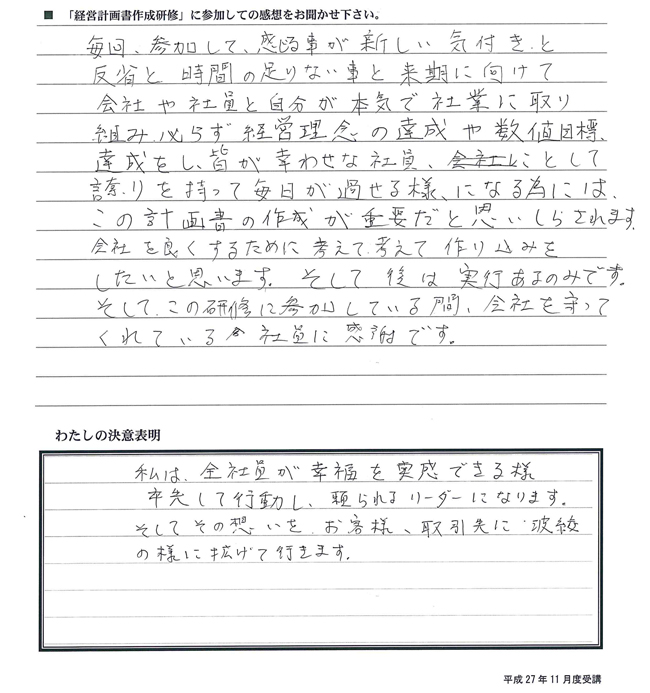 ■ 「経営計画書作成研修」に参加しての感想をお聞かせ下さい。
毎回、参加して、感る事が新しい気付きと
反省と時間の足りない事と来期に向けて
会社や社員と自分が本気で社業に取り
組み必らず経営理念の達成や数値目標、
達成をし、皆が幸わせな社員、会社としことして
誇りを持って毎日が過せる様、になる為には、
この計画書の作成が重要だと思いしらされます。
会社を良くするために考えて、考えて作り込みを
したいと思います。そして後は実行あるのみです。
そして、この研修に参加している間、会社を守って
くれている 社員に感謝です。
わたしの決意表明
私は、全社員が幸福を実感できる様
率先して行動し、頼られるリーダーになります。
そしてその想いを、お客様、取引先に波紋
の様に拡げて行きます。
平成27年11月度受講